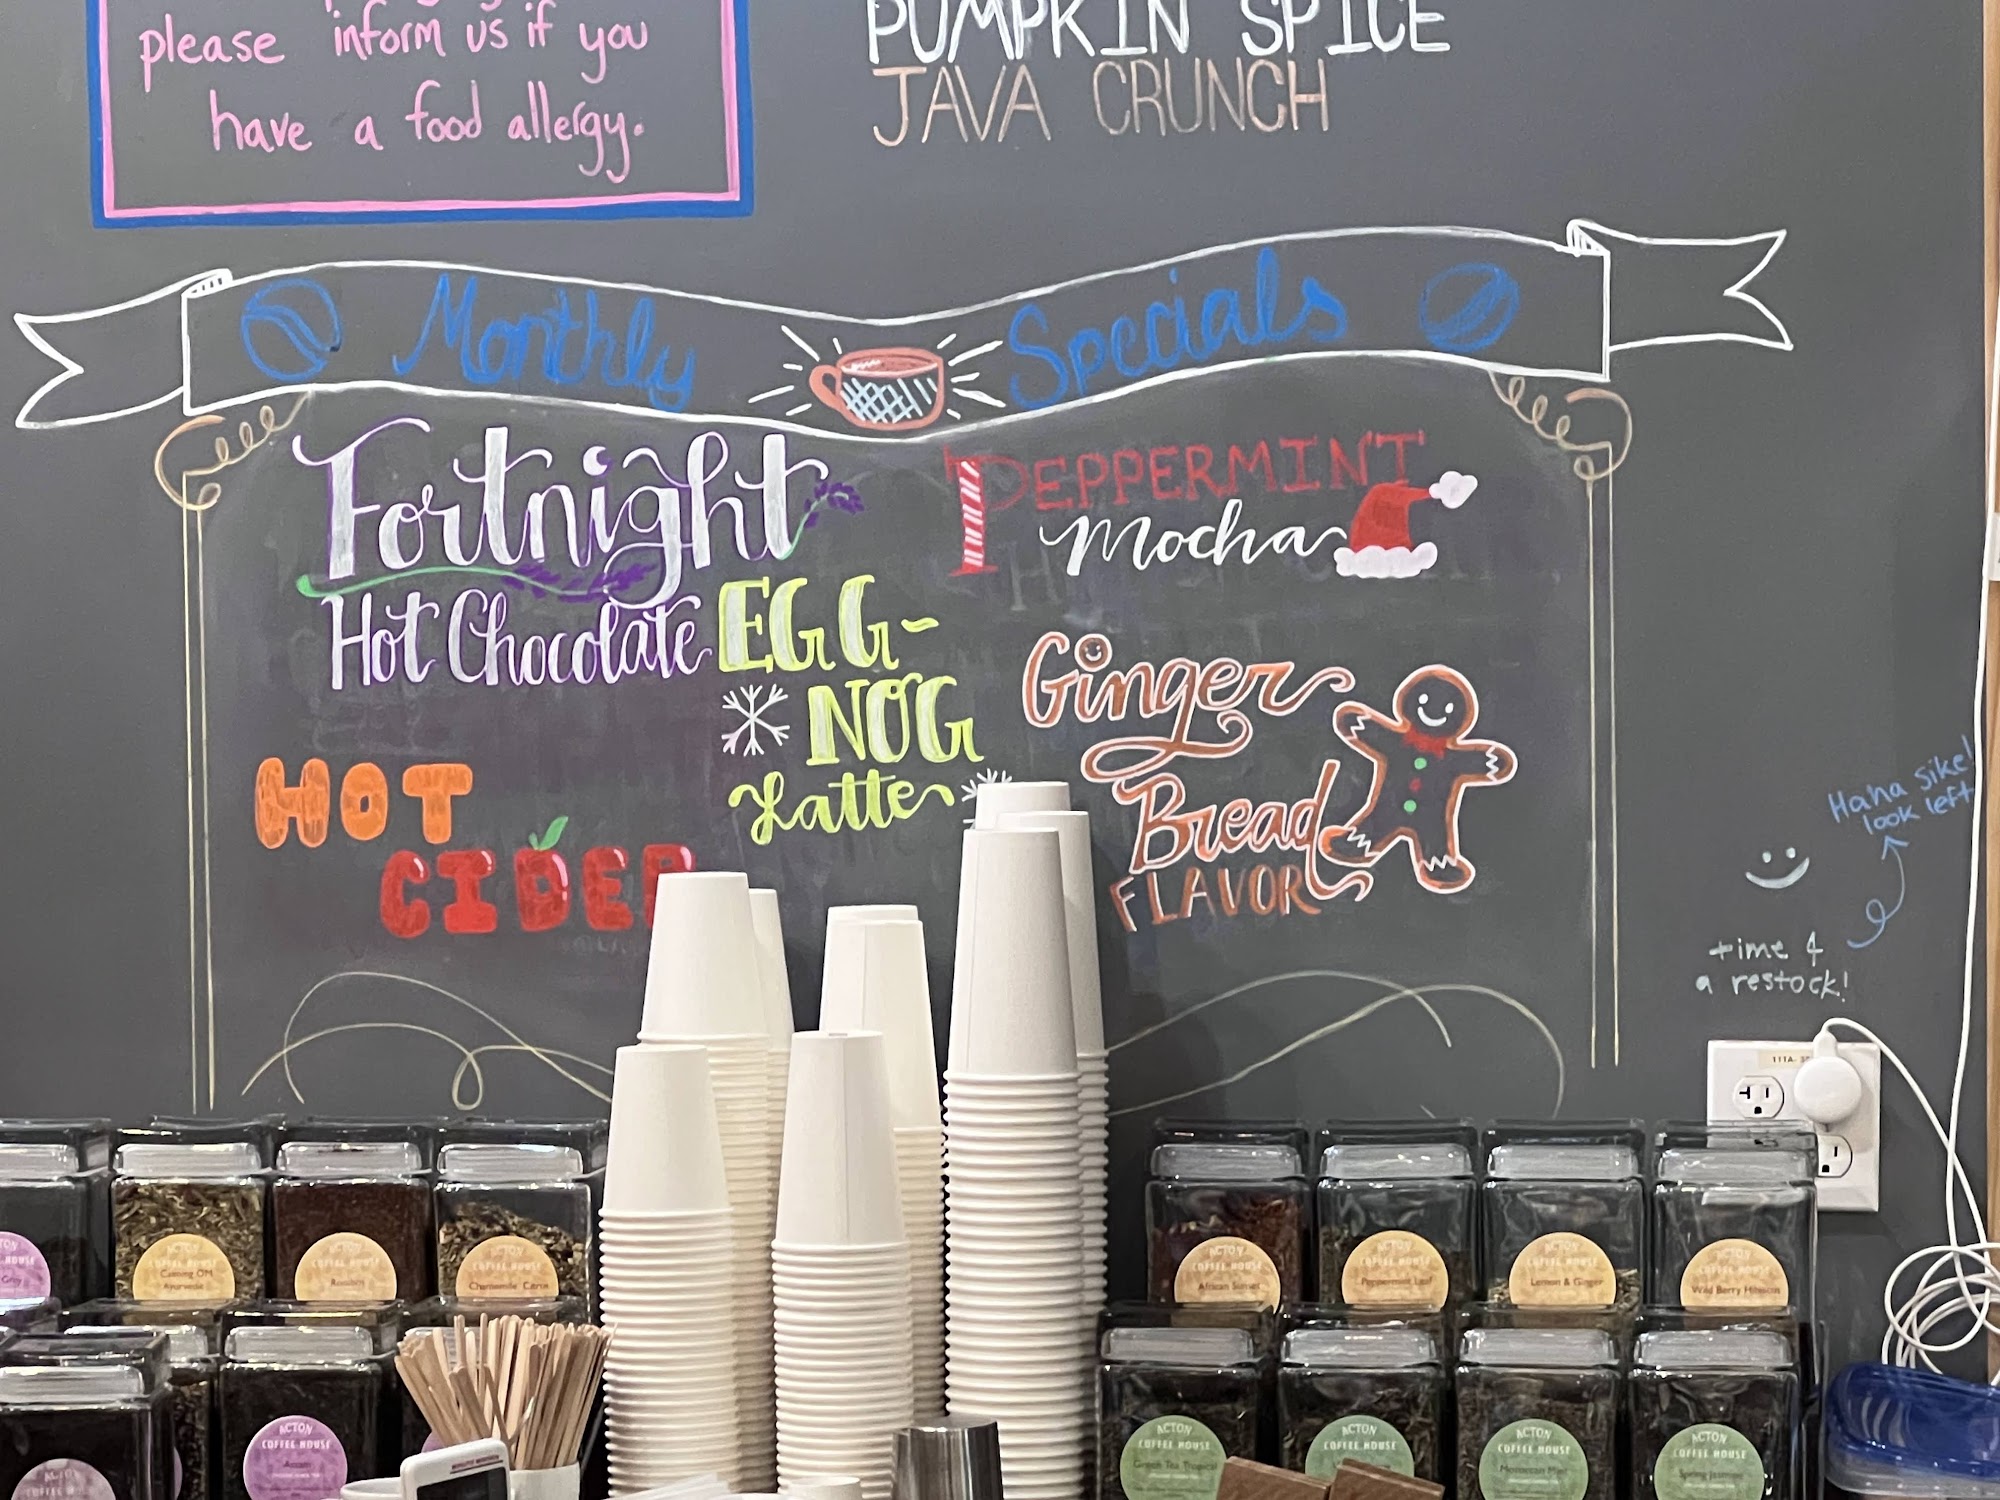 please inform us if you
have a food allergy.
PUMPKIN SPICE
JAVA CRUNCH
Monthly Specials
Fortnight
Hot Chocolate
EGG-
NOG
Latte
HOT
CIDER
PEPPERMINT
Mocha
Ginger
Bread
FLAVOR
Haha sike!
look left
time 4
a restock!
111A-
ACTON
COFFEE HOUSE
Calming OM
Ayurvedic
ACTON
COFFEE HOUSE
Rooibos
ACTON
COFFEE HOUSE
Chamomile Citrus
ACTON
COFFEE HOUSE
African Sunset
ACTON
COFFEE HOUSE
Peppermint Leaf
ACTON
COFFEE HOUSE
Lemon & Ginger
ACTON
COFFEE HOUSE
Wild Berry Hibiscus
ACTON
COFFEE HOUSE
Assam
ACTON
COFFEE HOUSE
Green Tea Tropical
ACTON
COFFEE HOUSE
ACTON
COFFEE HOUSE
Moroccan Mint
ACTON
COFFEE HOUSE
Spring Jasmine